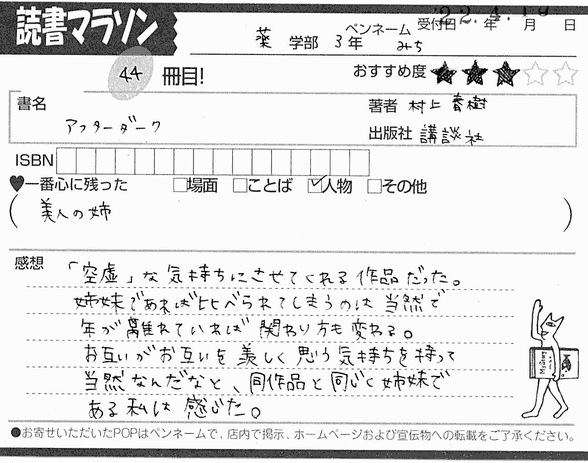 読書マラソン
受付日 '22.4.19 年 月 日
薬 学部 3年 ペンネーム みち
44 冊目!
おすすめ度 ★★★☆☆
書名
アフターダーク
著者 村上春樹
出版社 講談社
ISBN
♥一番心に残った □場面 □ことば ☑人物 □その他
(美人の姉)
感想
「空虚」な気持ちにさせてくれる作品だった。
姉妹であれば比べられてしまうのは当然で
年が離れていれば関わり方も変わる。
お互いがお互いを美しく思う気持ちを持って
当然なんだなと、同作品と同じく姉妹で
ある私は感じた。
●お寄せいただいたPOPはペンネームで、店内で掲示、ホームページおよび宣伝物への転載をご了承ください。